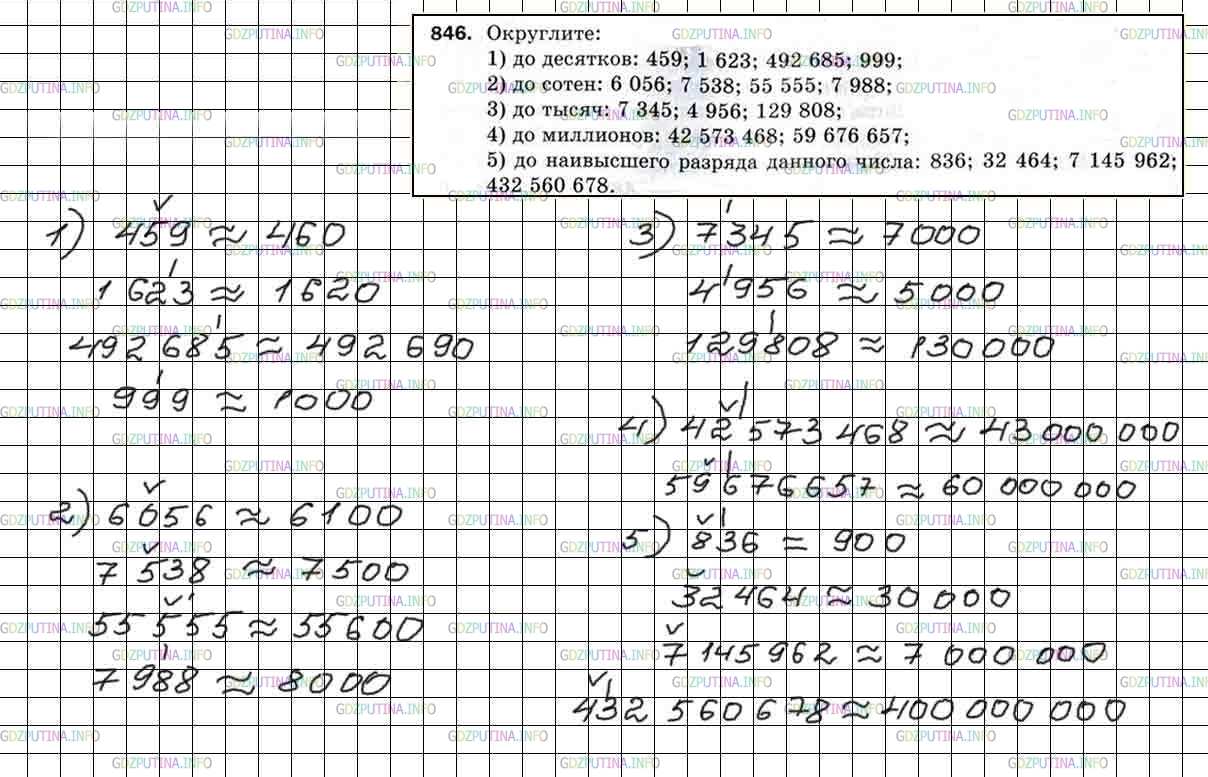 846. Округлите:
1) до десятков: 459; 1 623; 492 685; 999;
2) до сотен: 6 056; 7 538; 55 555; 7 988;
3) до тысяч: 7 345; 4 956; 129 808;
4) до миллионов: 42 573 468; 59 676 657;
5) до наивысшего разряда данного числа: 836; 32 464; 7 145 962;
432 560 678.
1) 459 ≈ 460
1 623 ≈ 1620
492 685 ≈ 492 690
999 ≈ 1000
2) 6056 ≈ 6100
7 538 ≈ 7500
55 555 ≈ 55600
7 988 ≈ 8000
3) 7345 ≈ 7000
4 956 ≈ 5000
129808 ≈ 130000
4) 42 573 468 ≈ 43 000 000
59 676 657 ≈ 60 000 000
5) 836 = 900
32 464 ≈ 30 000
7 145 962 ≈ 7 000 000
432 560 678 ≈ 400 000 000
GDZPUTINA.INFO